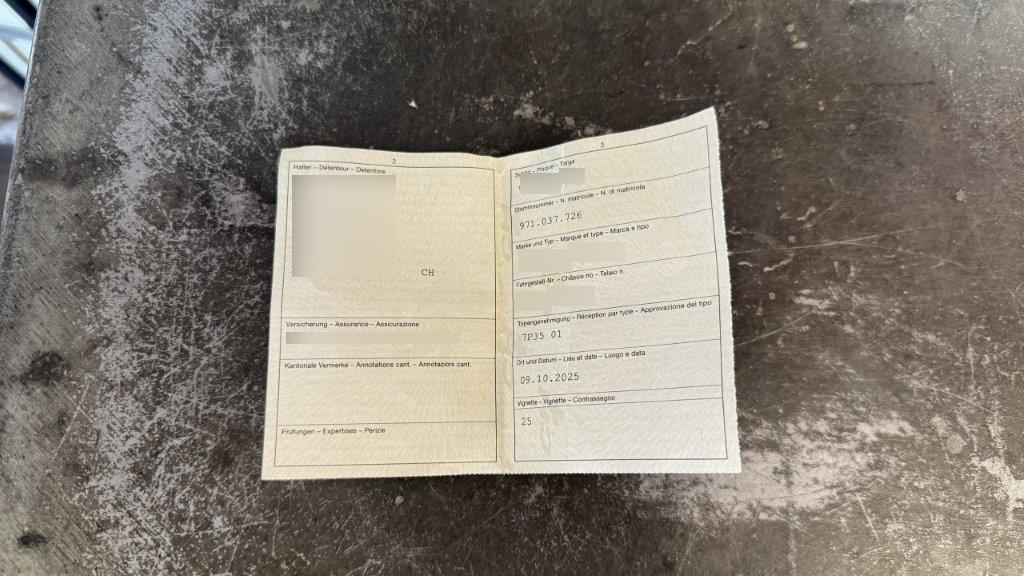 2
Halter – Détenteur – Detentore
CH
Versicherung – Assurance – Assicurazione
Kantonale Vermerke – Annotations cant. – Annotazioni cant.
Prüfungen – Expertises – Perizie
3
Schild – Plaque – Targa
Stammnummer – N. matricule – N. di matricola
971.037.726
Marke und Typ – Marque et type – Marca e tipo
Fahrgestell-Nr. – Châssis no – Telaio n.
Typengenehmigung – Réception par type – Approvazione del tipo
7P35 01
Ort und Datum – Lieu et date – Luogo e data
09.10.2025
Vignette – Vignette – Contrassegno
25